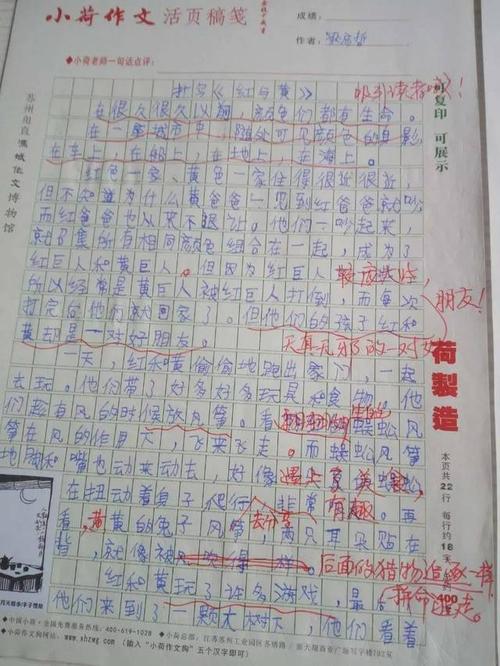 小荷作文 活页稿笺
成绩：
作者：
◆小荷老师一句话点评：
扩写《红与黄》
吸引读者
可复印 可展示
在很久很久以前，颜色们都有生命。
在一座城市中，随处可见颜色的身影，
在车上，在船，在地上，在海上。
红色一家、黄色一家住得很近很近，
但不知道为什么黄爸爸一见到红爸爸就吵，
而红爸爸也从来不退让。他们一吵起来，
就召集所有相同颜色组合在一起，成为了
红巨人和黄巨人。但因为红巨人
所以经常是黄巨人被红巨人打倒，而每次
打完后他们就回家了。但他们的孩子红和
黄却是一对好朋友。
朋友！
天真无邪的一对
一天，红和黄偷偷地跑出家门，一起
去玩。他们带了好多好多玩具和食物，他
们趁有风的时候放风筝。看 蜈蚣风
筝在风的作用下，飞来飞走。而蜈蚣风筝
地脚和嘴也动来动去，好像
在扭动着身子爬行，非常有趣。再
看，黄黄的兔子风筝，两只耳朵贴在
背，就像被 一样。
后面的猎物追逐一样
拼命逃走。
红和黄玩了许多游戏，最
他们来到了一颗大树下，他们看着
荷製造
本页共22行 每行约18
400
苏州闻直溥城作文博物馆
◆中国小荷·全国免费服务热线：400-619-1028
◆小荷总部：江苏苏州工业园区
小荷作文狗网站：www.xhzwg.cn（输入“小荷作文狗”五个汉字即可）